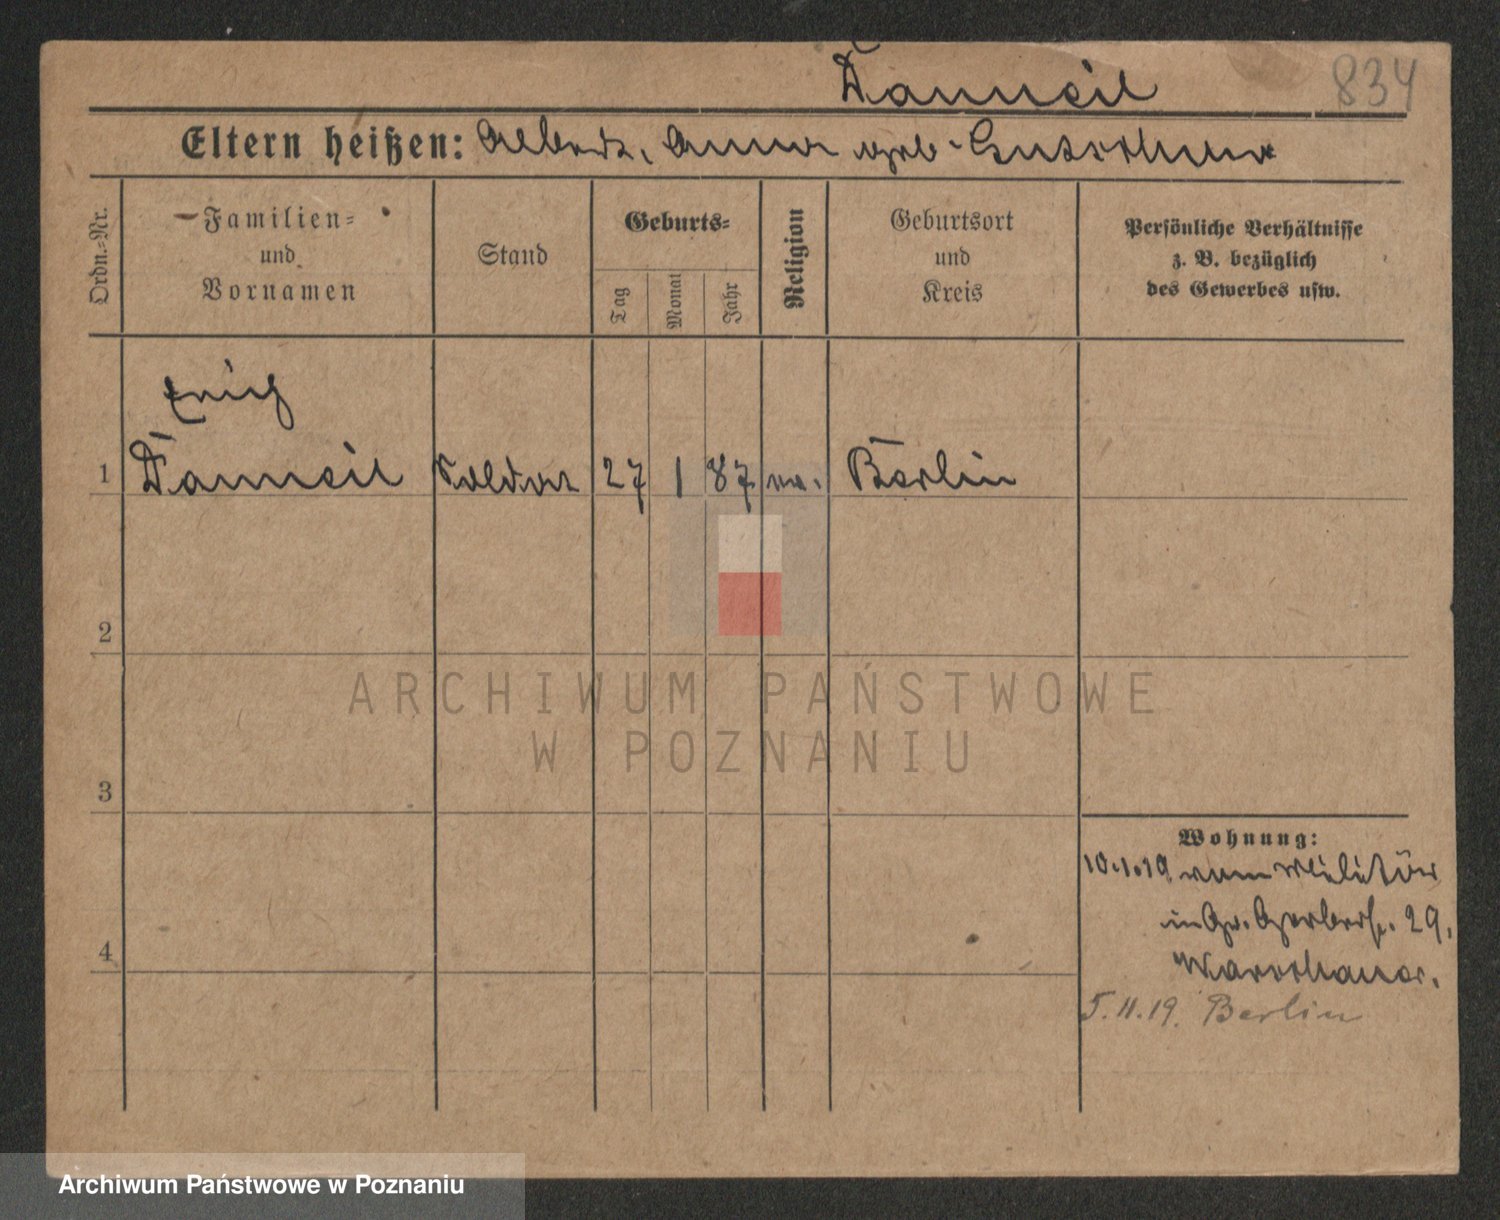 Danneil
834
Eltern heißen: Albert, Anna geb.
Ordn.=Nr.
Familien=
und
Vornamen
Stand
Geburts=
Tag
Monat
Jahr
Religion
Geburtsort
und
Kreis
Persönliche Verhältnisse
z. B. bezüglich
des Gewerbes usw.
Erich
1 Danneil Soldat 27 1 87 ev. Berlin
2
3
4
Wohnung:
10.1.19 vom Militär
in Gr. Gerberst. 29.
5.11.19. Berlin
ARCHIWUM PAŃSTWOWE
W POZNANIU
Archiwum Państwowe w Poznaniu